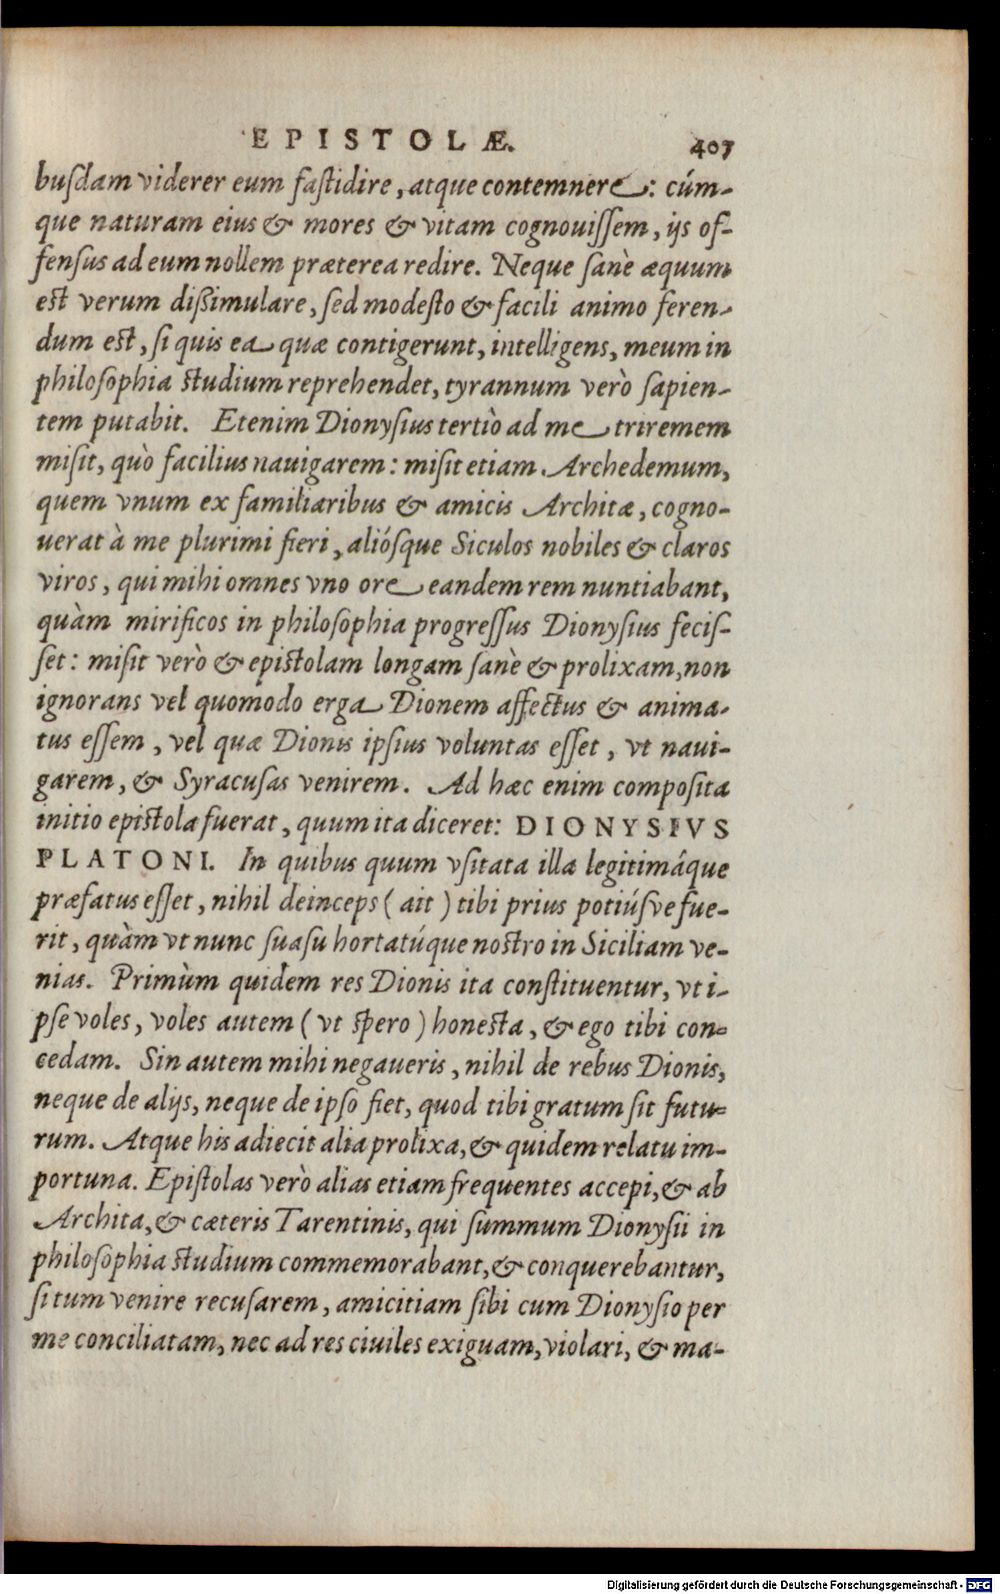 EPISTOLÆ. 407
buſdam viderer eum faſtidire, atque contemnere: cúm-
que naturam eius & mores & vitam cognouiſſem, ijs of-
fenſus ad eum nollem præterea redire. Neque ſanè æquum
eſt verum diſſimulare, ſed modeſto & facili animo feren-
dum eſt, ſi quis ea quæ contigerunt, intelligens, meum in
philoſophia ſtudium reprehendet, tyrannum verò ſapien-
tem putabit. Etenim Dionyſius tertiò ad me triremem
miſit, quò facilius nauigarem: miſit etiam Archedemum,
quem vnum ex familiaribus & amicis Architæ, cogno-
uerat à me plurimi fieri, alióſque Siculos nobiles & claros
viros, qui mihi omnes vno ore eandem rem nuntiabant,
quàm mirificos in philoſophia progreſſus Dionyſius feciſ-
ſet: miſit verò & epiſtolam longam ſanè & prolixam, non
ignorans vel quomodo erga Dionem affectus & anima-
tus eſſem, vel quæ Dionis ipſius voluntas eſſet, vt naui-
garem, & Syracuſas venirem. Ad hæc enim compoſita
initio epiſtola fuerat, quum ita diceret: DIONYSIVS
PLATONI. In quibus quum vſitata illa legitimáque
præfatus eſſet, nihil deinceps (ait) tibi prius potiúſve fue-
rit, quàm vt nunc ſuaſu hortatúque noſtro in Siciliam ve-
nias. Primùm quidem res Dionis ita conſtituentur, vt i-
pſe voles, voles autem (vt ſpero) honeſta, & ego tibi con-
cedam. Sin autem mihi negaueris, nihil de rebus Dionis,
neque de alijs, neque de ipſo fiet, quod tibi gratum ſit futu-
rum. Atque his adiecit alia prolixa, & quidem relatu im-
portuna. Epiſtolas verò alias etiam frequentes accepi, & ab
Archita, & cæteris Tarentinis, qui ſummum Dionyſii in
philoſophia ſtudium commemorabant, & conquerebantur,
ſi tum venire recuſarem, amicitiam ſibi cum Dionyſio per
me conciliatam, nec ad res ciuiles exiguam, violari, & ma-
Digitalisierung gefördert durch die Deutsche Forschungsgemeinschaft - DFG